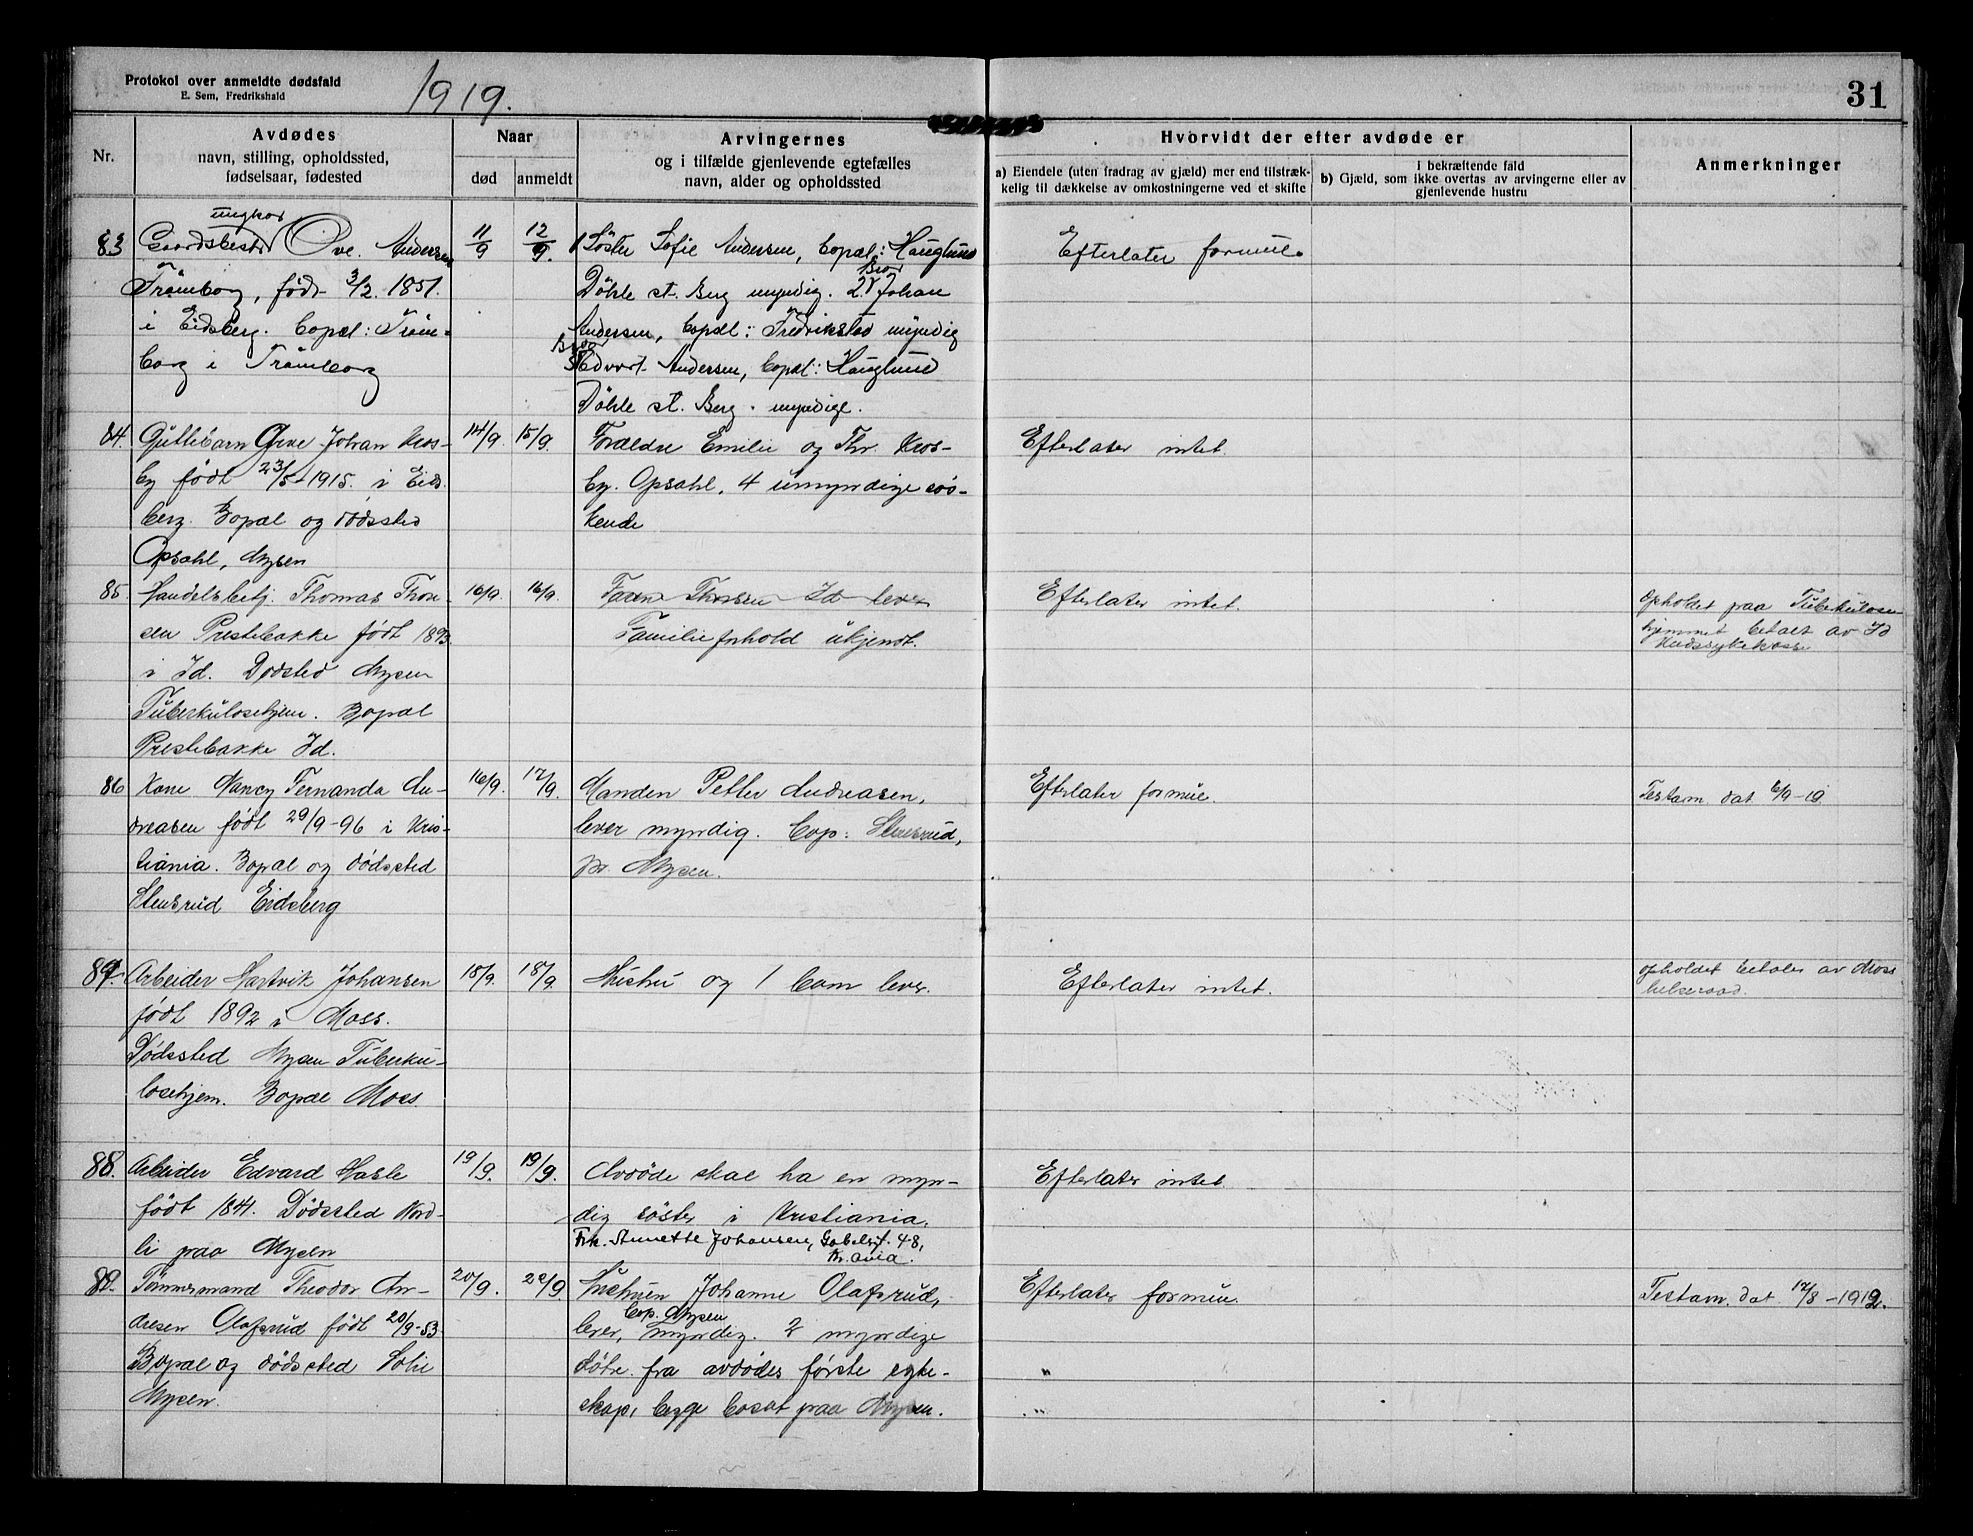 Protokol over anmeldte dødsfald
E. Sem, Fredrikshald
1919.
31
Nr.
Avdødes
navn, stilling, opholdssted,
fødselsaar, fødested
Naar
død
anmeldt
Arvingernes
og i tilfælde gjenlevende egtefælles
navn, alder og opholdssted
Hvorvidt der efter avdøde er
a) Eiendele (uten fradrag av gjæld) mer end tilstræk-
kelig til dækkelse av omkostningerne ved et skifte
i bekræftende fald
b) Gjæld, som ikke overtas av arvingerne eller av
gjenlevende hustru
Anmerkninger
83
ungkar
Gaardsbestr Ove Andersen
Trömborg, född 3/2. 1851.
i Eidsberg. Bopæl: Tröm-
borg i Trömborg
11/9
12/9.
1 Söster Sofie Andersen, bopæl: Hauglund
Döhle st. Berg myndig. 2. Bror Johan
Andersen, bopæl: Fredrikstad myndig
Bror
3 Edvart Andersen, bopæl: Hauglund
Döhle st. Berg. myndige.
Efterlater formue
84.
Guttebarn Johan Kros-
by født 23/5-1915. i Eids-
berg. Bopæl og dødssted
Opsahl, Mysen
14/9.
15/9.
Forældre Emilie og Thv. Kros-
by. Opsahl, 4 umyndige søs-
kende
Efterlater intet.
85.
Handelsbetj. Thomas Thor-
sen Prestebakke født 1893
i Id. Dødsted Mysen
Tuberkulosehjem. Bopæl
Prestebakke Id.
16/9.
16/9.
Faren Thorsen Id lever
Familieforhold ukjendt.
Efterlater intet.
Opholdet paa Tuberkulose
hjemmet betalt av Id
Kredssykekasse
86
Kone Nancy Fernanda An-
dreasen født 29/9-96 i Kris-
tiania. Bopæl og dødssted
Stensrud Eidsberg
16/9.
17/9.
Manden Petter Andreasen,
lever myndig. bop: Stensrud,
pr. Mysen.
Efterlater formue.
Testam. dat 6/9-19
87.
Arbeider Hartvik Johansen
født 1892 i Moss.
Dødssted Mysen Tuberku-
losehjem. Bopæl Moss.
18/9.
18/9.
Hustru og 1 barn lever.
Efterlater intet.
opholdet betales av Moss
helseraad.
88.
Arbeider Edvard Hasle
født 1841. Dødssted Nord-
li paa Mysen
19/9.
19/9.
Avdøde skal ha en myn-
dig søster i Kristiania.
Frk. Annette Johansen, Gabelsgt. 48,
Kr.ania.
Efterlater intet.
89.
Tømmermand Theodor An-
dresen Olafsrud født 20/9-53
Bopæl og dødssted Solie
Mysen.
20/9.
20/9.
Hustruen Johanne Olafsrud,
bop. Mysen
lever, myndig. 2 myndige
døtre fra avdødes første egte-
skap, begge bosat paa Mysen.
Efterlater formue.
"
"
Testam. dat. 17/8-1912.